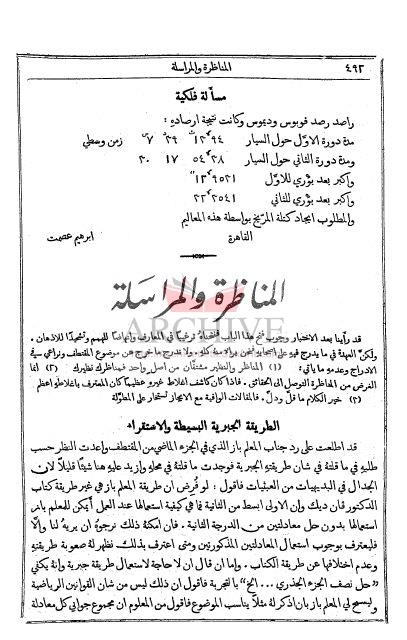 المناظرة والمراسلة ٤٩٢
مسألة فلكية
راصد رصد فوبوس وديموس وكانت نتيجة ارصاده :
مدة دورة الاول حول السيار ٧ ٣٩ زمن وسطي
ومدة دورة الثاني حول السيار ٣٠ ١٧
واكبر بعد بؤري للاول
واكبر بعد بؤري للثاني
والمطلوب ايجاد كتلة المريخ بواسطة هذه المعاليم
القاهرة ابرهيم عصمت
المناظرة والمراسلة
ARCHIVE
قد رأينا بعد الاختبار وجوب فتح هذا الباب ففتحناه ترغيبًا في المعارف وانهاضًا للهمم وتشحيذًا للاذهان .
ولكنّ العهدة في ما يدرج فيه على اصحابه فنحن برالا منه كله . ولا ندرج ما خرج عن موضوع المقتطف ونراعي في
الادراج وعدمه ما ياتي : (١) المناظر والنظير مشتقان من اصل واحد فمناظرك نظيرك (٢) انما
الغرض من المناظرة التوصل الى الحقائق . فاذا كان كاشف اغلاط غيره عظيمًا كان المعترف باغلاطه اعظم
(٣) خير الكلام ما قلّ ودلّ . فالمقالات الوافية مع الايجاز تستخار على المطوّلة
الطريقة الجبرية البسيطة والاستقراء
قد اطلعت على رد جناب المعلم باز الذي في الجزء الماضي من المقتطف واعدت النظر حسب
طلبه في ما قلته في شان طريقته الجبرية فوجدت ما قلته في محله وازيد عليه هنا شيئًا قليلًا لان
الجدال في البديهيات من العبثيات فاقول : لو فُرض ان طريقة المعلم باز هي غير طريقة كتاب
الدكتور فان ديك وإن الاولى ابسط من الثانية فما هي كيفية استعمالها عند العمل أيمكن للمعلم باز
استعمالها بدون حل معادلتين من الدرجة الثانية . فان امكنه ذلك نرجوه ان يريه لنا والّا
فليعترف بوجوب استعمال المعادلتين المذكورتين ومتى اعترف بذلك تظهر له صعوبة طريقته
وعدم اختلافها عن طريقة الكتاب . وإما ان قال ان لا حاجة لاستعمال طريقة جبرية وإنه يكفي
" حل نصف الجزء الجذري ... الخ " بالتجربة فاقول ان ذلك ليس من شان القوانين الرياضية
ويسمح لي المعلم باز بان اذكر له مثلًا يناسب الموضوع فاقول من المعلوم ان مجموع جوابي كل معادلة